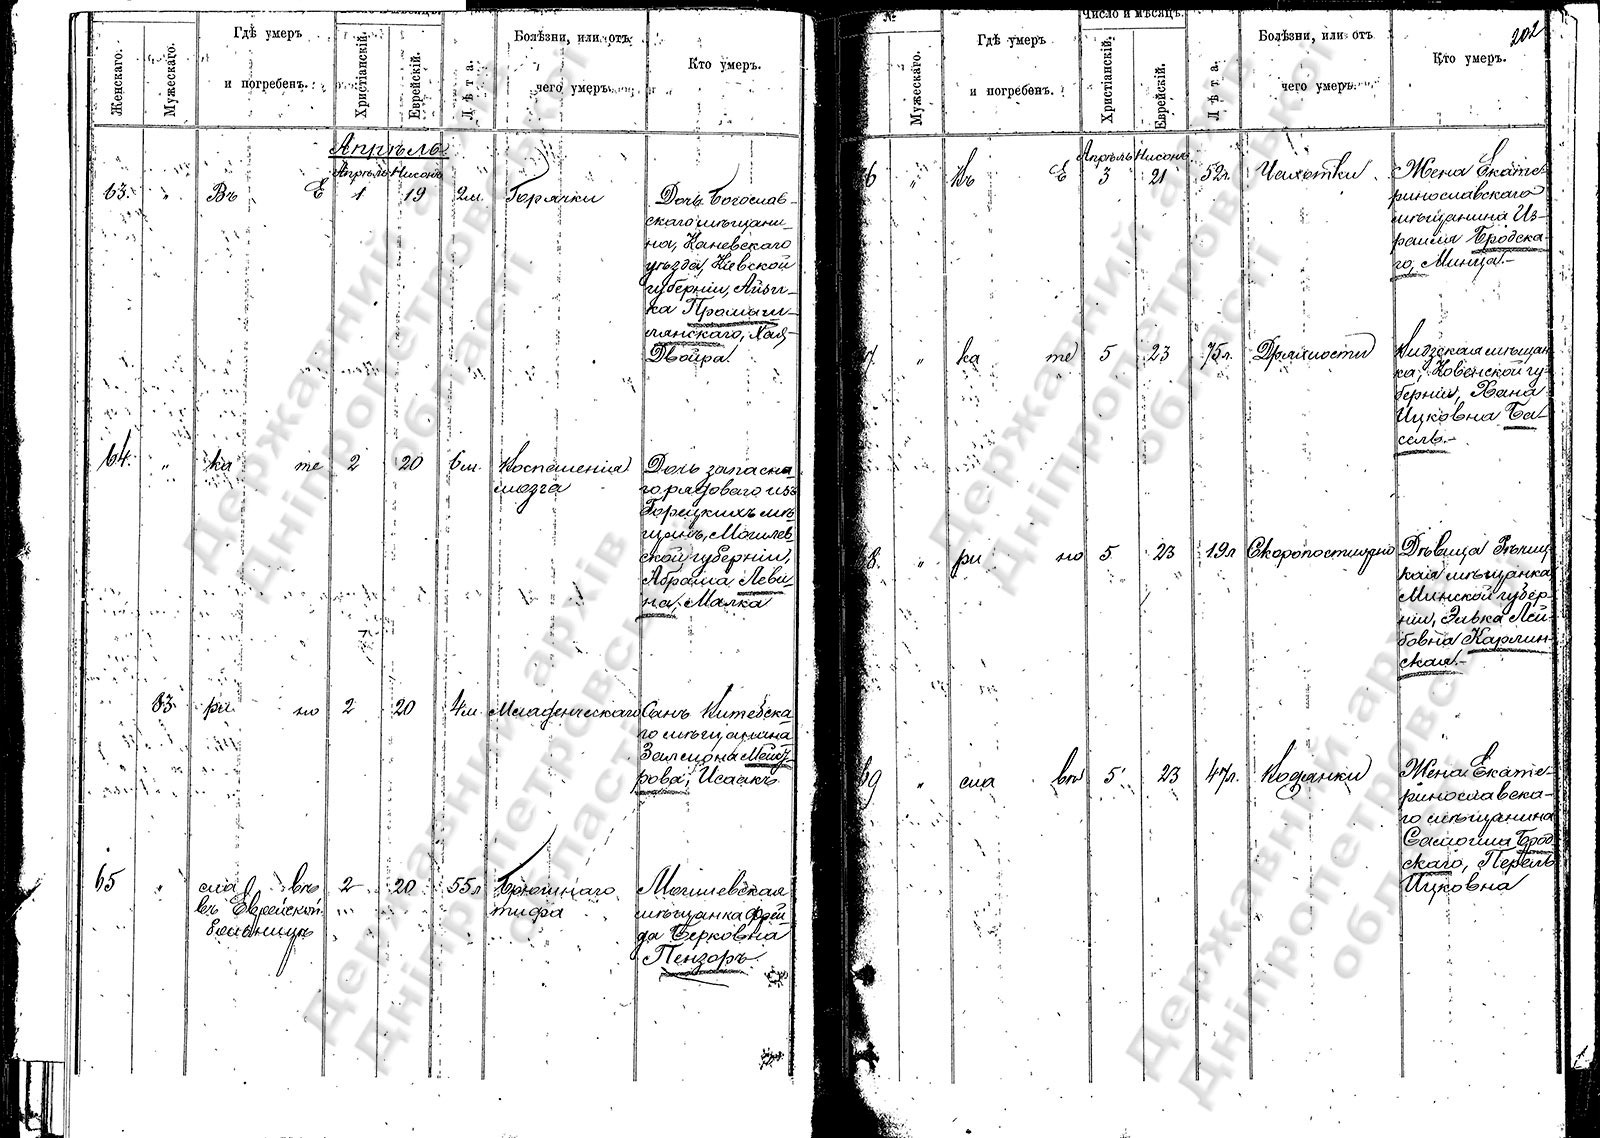 Женскаго.
Мужескаго.
Гдѣ умеръ
и погребенъ.
Христіанскій.
Еврейскій.
Лѣта.
Болѣзни, или отъ
чего умеръ.
Кто умеръ.
Апрѣль
Апрѣль Нисонъ
63. " Въ Е 1 19 2 м. Горячки
Дочь Богослав-
скаго мѣщани-
на, Каневскаго
уѣзда, Кіевской
губерніи, Айзи-
ка
Хая
Двойра.
64. " ка те 2 20 6 м. Воспаленія
мозга
Дочь запасна-
го рядоваго изъ
Горецкихъ мѣ-
щанъ, Могилев-
ской губерніи,
Абрама Леви-
на, Малка
83 ри но 2 20 4 м. Младенческаго
Сынъ Витебска-
го мѣщанина
Залмона
Исаакъ
65 " сла вѣ 2 20 55 л Брюшнаго
въ Еврейской тифа
больницѣ
Могилевская
мѣщанка Фрей-
да Берковна
Пензоръ
№
Мужескаго.
Гдѣ умеръ
и погребенъ.
Число и мѣсяцъ.
Христіанскій.
Еврейскій.
Лѣта.
Болѣзни, или отъ
чего умеръ.
Кто умеръ.
202
Апрѣль Нисонъ
6 " Въ Е 3 21 52 л. Чахотки
Жена Екате-
ринославскаго
мѣщанина Из-
раиля Бродска-
го, Минца.-
7. " ка те 5 23 75 л. Дряхлости
Видзская мѣщан-
ка, Ковенской гу-
берніи, Хана
Ицковна Ба-
сель.-
8. " ри но 5 23 19 л Скоропостижно
Дѣвица Рѣчиц-
кая мѣщанка
Минской губер-
ніи, Элька Лей-
бовна Карлин-
ская.-
69 " сла вѣ 5 23 47 л. Водянки
Жена Екате-
ринославска-
го мѣщанина
Самоила Брод-
скаго, Перель
Ицковна
Державний архів
Дніпропетровської
області